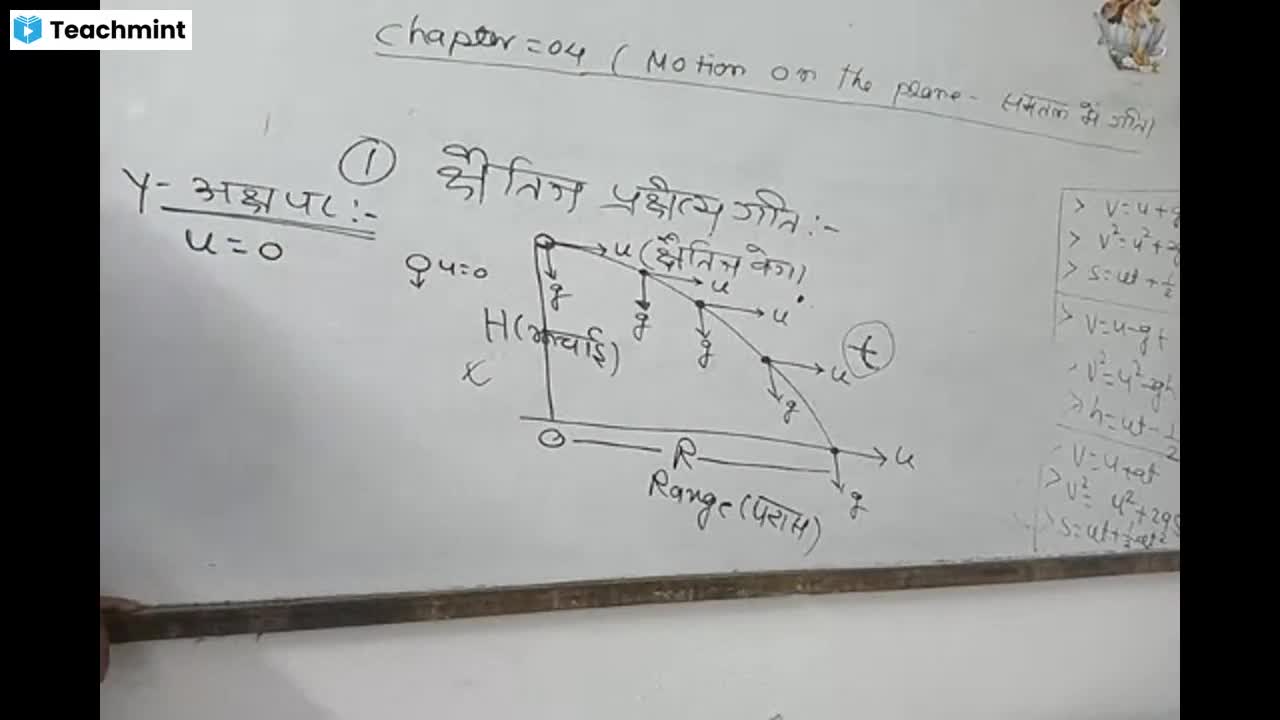 Teachmint
Chapter = 04 ( Motion on the plane - समतल में गति)
① क्षैतिज प्रक्षेप्य गति :-
Y- अक्ष पर :-
u = 0
u=0
u (क्षैतिज वेग)
g
u
g
u
g
H (ऊँचाई)
t
u
g
O
R
u
g
Range (परास)
> v = u + g
> v² = u² + 2g
> s = ut + 1/2
> v = u - gt
> v² = u² - 2gh
> h = ut - 1/2
v = u + at
> v² = u² + 2as
> s = ut + 1/2 at²